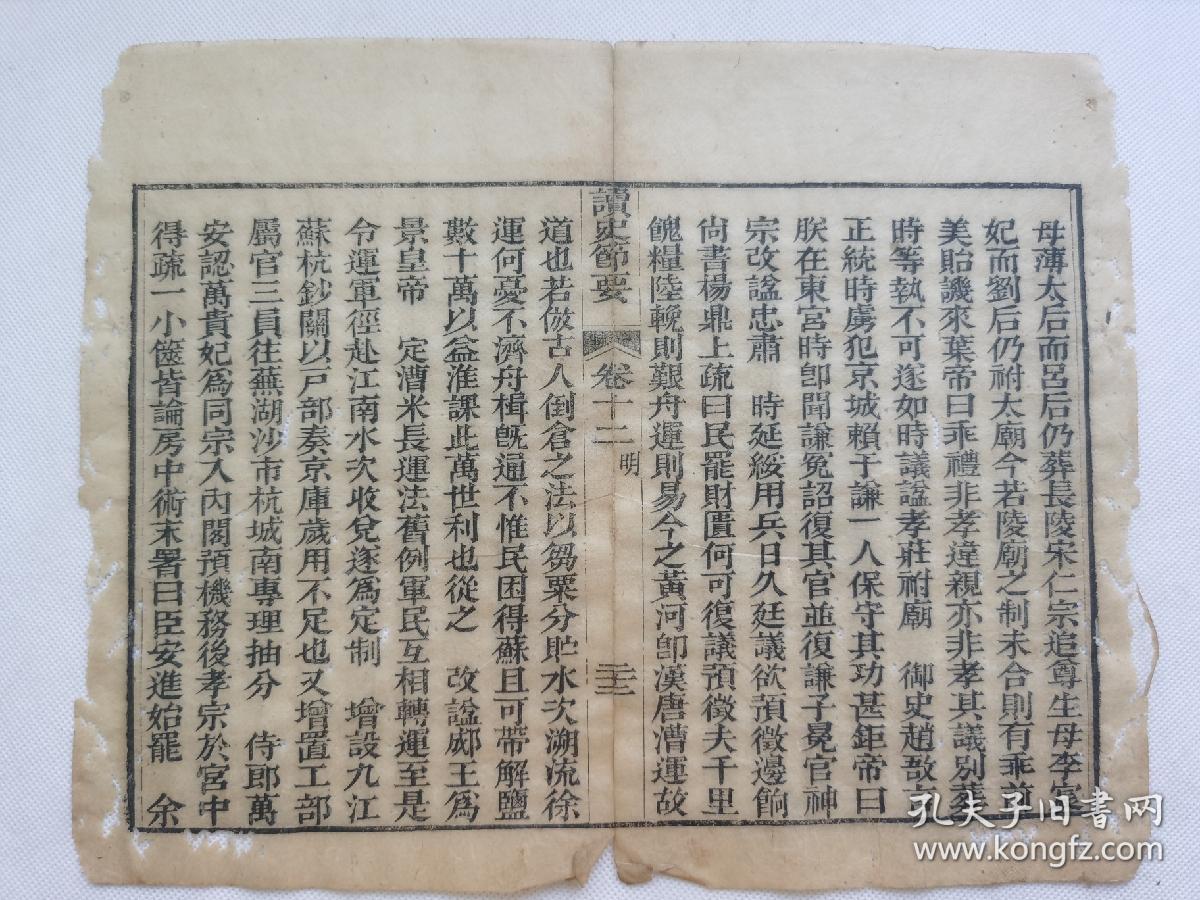 母薄太后而呂后仍葬長陵宋仁宗追尊生母李宸
妃而劉后仍祔太廟今若陵廟之制未合則有乖前
美貽譏來葉帝曰乖禮非孝違親亦非孝其議別葬
時等執不可遂如時議諡孝莊祔廟　御史趙敔
正統時虜犯京城賴于謙一人保守其功甚鉅帝曰
朕在東宮時卽聞謙冤詔復其官並復謙子冕官神
宗改諡忠肅　時延綏用兵日久廷議欲預徵邊餉
尙書楊鼎上疏曰民罷財匱何可復議預徵夫千里
餽糧陸輓則艱舟運則易今之黃河卽漢唐漕運故
讀史節要　卷十二　明　二十三
道也若倣古人倒倉之法以芻粟分貯水次溯流徐
運何憂不濟舟楫旣通不惟民困得蘇且可帶解鹽
數十萬以益淮課此萬世利也從之　改諡郕王爲
景皇帝　定漕米長運法舊例軍民互相轉運至是
令運軍徑赴江南水次收兌遂爲定制　增設九江
蘇杭鈔關以戸部奏京庫歲用不足也又增置工部
屬官三員往蕪湖沙市杭城南專理抽分　侍郎萬
安認萬貴妃爲同宗入內閣預機務後孝宗於宮中
得疏一小篋皆論房中術末署曰臣安進始罷　余
孔夫子旧书网
www.kongfz.com